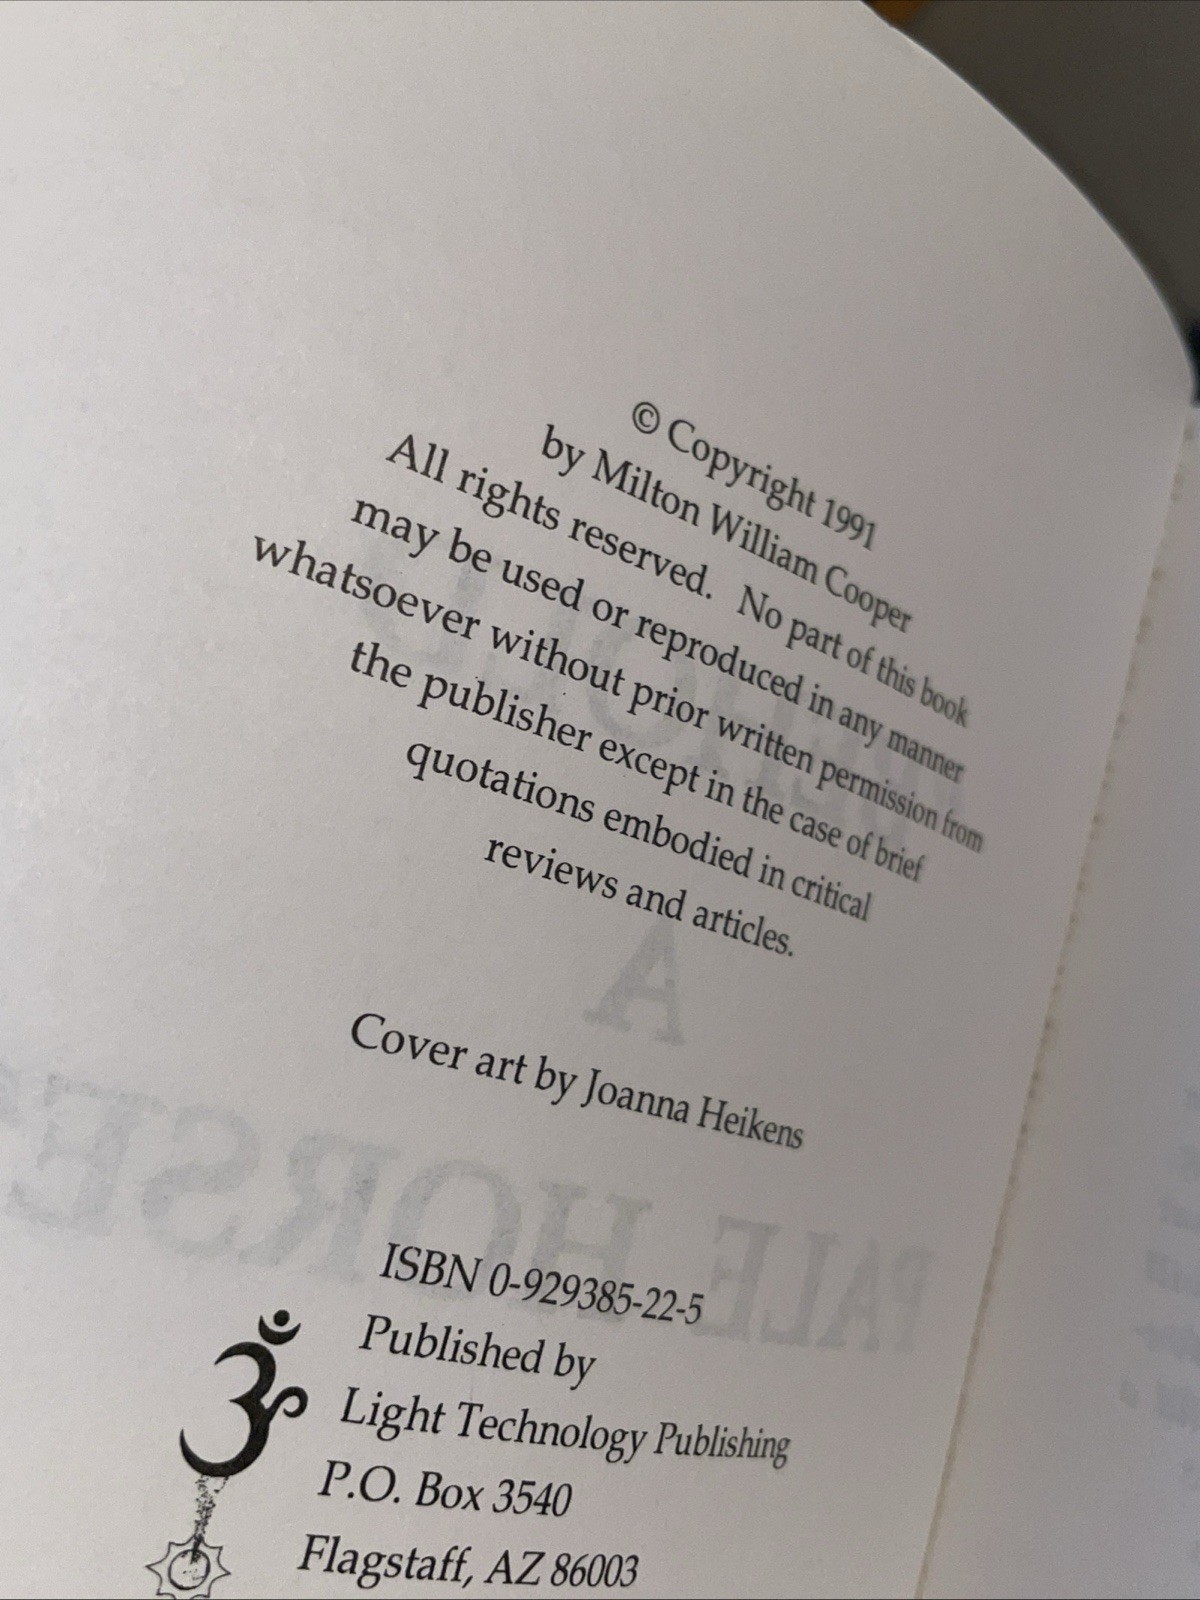 © Copyright 1991
by Milton William Cooper
All rights reserved. No part of this book
may be used or reproduced in any manner
whatsoever without prior written permission from
the publisher except in the case of brief
quotations embodied in critical
reviews and articles.
Cover art by Joanna Heikens
ISBN 0-929385-22-5
Published by
Light Technology Publishing
P.O. Box 3540
Flagstaff, AZ 86003
ॐ